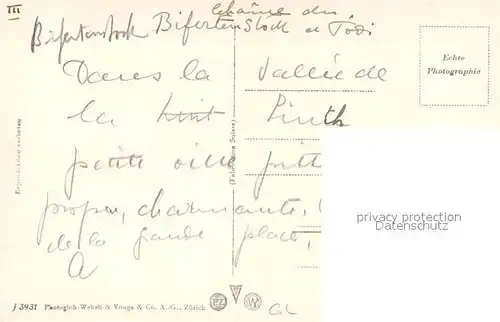 III
Chaîne du
Bifertenstock Bifertenstock et Tödi
Dans la vallée de
la Lint Linth
petite ville
propre, charmante,
de la grande place,
A
Echte
Photographie
Reproduktion verboten
(Fabrication Suisse)
privacy protection
Datenschutz
J 3931 Photoglob-Wehrli & Vouga & Co. A.-G., Zürich
PZ
W
GL